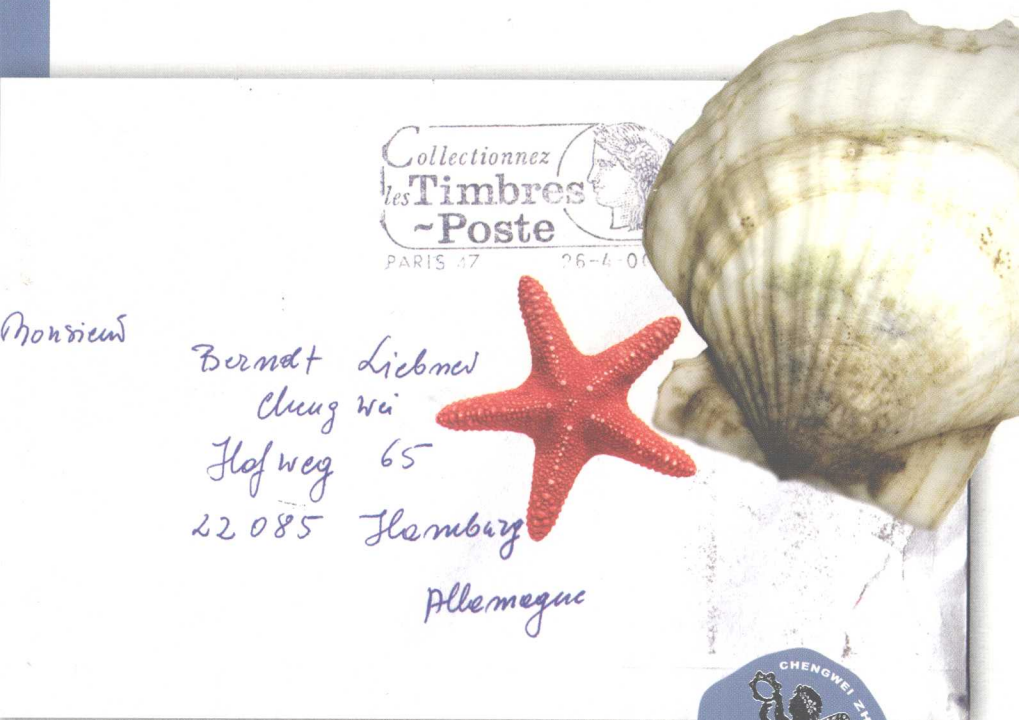 Collectionnez
les Timbres
~Poste
PARIS 47 26-4-0
Monsieur
Berndt Liebner
Cheng Wei
Hofweg 65
22 085 Hamburg
Allemagne
CHENGWEI ZH